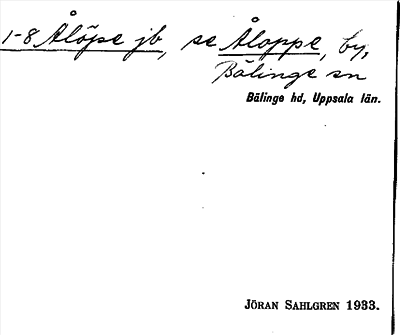 1-8 Ålöpe jb, se Åloppe, by,
Bälinge sn
Bälinge hd, Uppsala län.
JÖRAN SAHLGREN 1933.